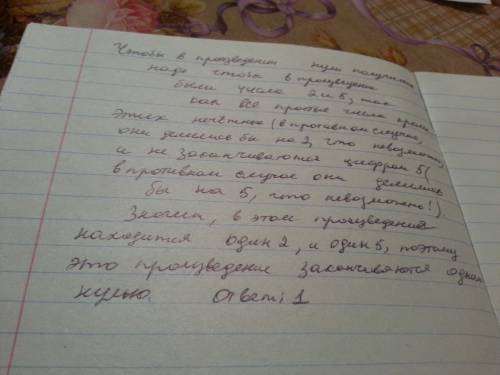 Чтобы в произведении нули получились
надо чтобы в произведение
были числа 2 и 5, так
как все простые числа кроме
этих нечётные (в противном случае,
они делились бы на 2, что невозможно)
и не заканчиваются цифрой 5(
в противном случае они делились
бы на 5, что невозможно!).
Значит, в этом произведение
находится один 2, и один 5, поэтому
это произведение заканчиваются одним
нулью. Ответ: 1